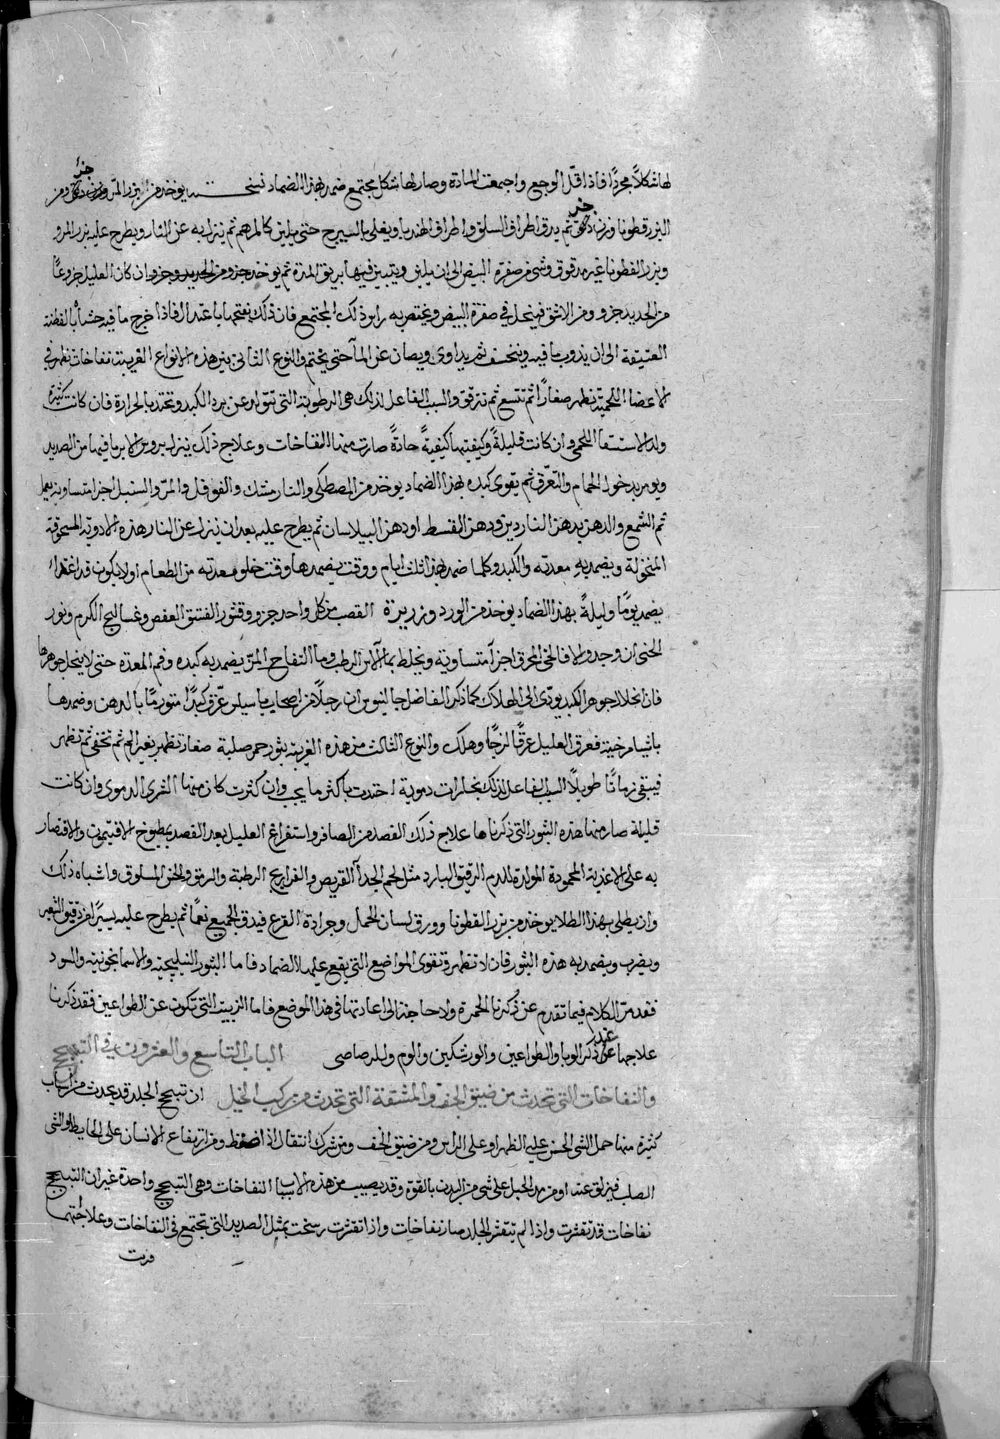 لها شكلاً مجردًا فاذا قل الوجع واجمعت المادة وصار لها شكل مجتمع ضمد بهذا الضماد نسخته يوخذ من بزر المرو جزء ومن
البزرقطونا جزء ثم يدق اطراف السلق واطراف الهندبا ويغلى بالشيرج حتى يلين كالمرهم ثم ينزل به عن النار ويطرح عليه بزر المرو
وبزر القطونا غير مدقوق وشى من صفرة البيض الى ان يلين ويتبين فيها بريق المدة ثم يوخذ جزو من الحديد وجزو ان كان العليل جزوعًا
من الحديد جزو ومن الاشق فينحل في صفرة البيض ويختص به راس ذلك المجتمع فان ذلك يفتحها باعتدال فاذا خرج ما فيه حشا بالقطنة
العتيقة الى ان يذوب ما فيه وينخسف ثم يداوى ويصان عن الما حتى يختم والنوع الثاني من هذه الانواع الغريبة نفاخات تظهر في
الاعضا اللحمية تظهر صغارًا ثم تتسع ثم تترقق والسبب الفاعل لذلك هى الرطوبة التى تتولد عن برد الكبد وتحتد بالحرارة فان كانت كثيرة
ولد الاستسقا اللحمى وان كانت قليلةً وكيفيتها كيفيةً حادةً صارت منها النفاخات وعلاج ذلك بروس الابر ما فيها من الصديد
ويومر بدخول الحمام والتعرّق ثم يقوى كبده بهذا الضماد يوخذ من المصطكى والنارمشك والفوفل والمرّ والسنبل اجزا متساوية يعمل
ثم الشمع والدهن بدهن الناردين ودهن القسط او دهن البيلاسان ثم يطرح عليه بعد ان ينزل عن النار هذه الادوية المسحوقة
المنخولة ويضمد به معدته والكبد وكلما ضمد بهذا ثلث ايام ووقت يضمدها وقت خلو معدته من الطعام او لا يكون قد اغتذا
يضمد يومًا وليلةً بهذا الضماد يوخذ من الورد وزريرة القصب من كل واحد جزو وقشور الفستق العفص وعساليج الكرم ونور
الحنى ان وجد والا فالحنى المحرق اجزآ متساوية ويخلط بمآ الآس الرطب وما التفاح المرّ يضمد به كبده وفم المعدة حتى لا ينحل جوهرها
فان انحلال جوهر الكبد يودّى الى الهلاك كما ذكر الفاضل جالينوس ان رجلاً من اصحاب باسيلس عرّق كبدًا متورمًا بالدهن وضمدها
باشيا مرخية فعرق العليل عرقًا لزجًا وهلك والنوع الثالث من هذه الغريبة بثور حمر صلبة صغار تظهر بغير الم ثم تختفى ثم تظهر
فيبقى زمانًا طويلًا السبب الفاعل لذلك بخارات دموية احتدت باكثر ما يجب وان كثرت كان منها الشرى الدموى وان كانت
قليلة صار منها هذه البثور التى ذكرناها علاج ذلك الفصد من الصافن واستفراغ العليل بعد الفصد بمطبوخ الافتيمون والاقتصار
به على الاغذية المحمودة المولدة للدم الرقيق البارد مثل لحم الجدآ القريص والفراريج الرطبة والخس المسلوق واشباه ذلك
وان يطلى بهذا الطلا يوخذ من بزر القطونا وورق لسان الحمل وجرادة القرع فيدق الجميع نعمًا ثم يطرح عليه يسيرًا من دقيق الشعير
ويضرب ويضمد به هذه البثور فان لا تظهر وتقوى المواضع التى يقع عليها الضماد فاما البثور البنفسجية والاسمانجونية والسود
فقد مرّ الكلام فيما تقدم عن ذكرنا الحمرة ولا حاجة الى اعادتها في هذا الموضع فاما التى تكون عن الطواعين فقد ذكرنا
علاجها عند ذكر الوبا والطواعين والورشكين والورم الرصاصى الباب التاسع والعشرون في التبهبج
والنفاخات التى تحدث من ضيق الخف والمشقة التى تحدث من ركب الخيل ان تبهبج الجلد قد يحدث من اسباب
كثيرة منها حمل الشى الخشن على الظهر او على الراس ومن ضيق الخف ومن شرك انتقال اذا ضغط ومن ارتفاع الانسان على الحايط او الشى
الصلب فيزلق عنه او من مد الحبل على شى من البدن بالقوة وقد يصيب من هذه الاسباب النفاخات وهى التبهبج واحدة غير ان التبهبج
نفاخات قد تقشرت واذا لم يتقشر الجلد صار نفاخات واذا تقشرت رسخت بمثل الصديد التى تجتمع في النفاخات وعلاجتها